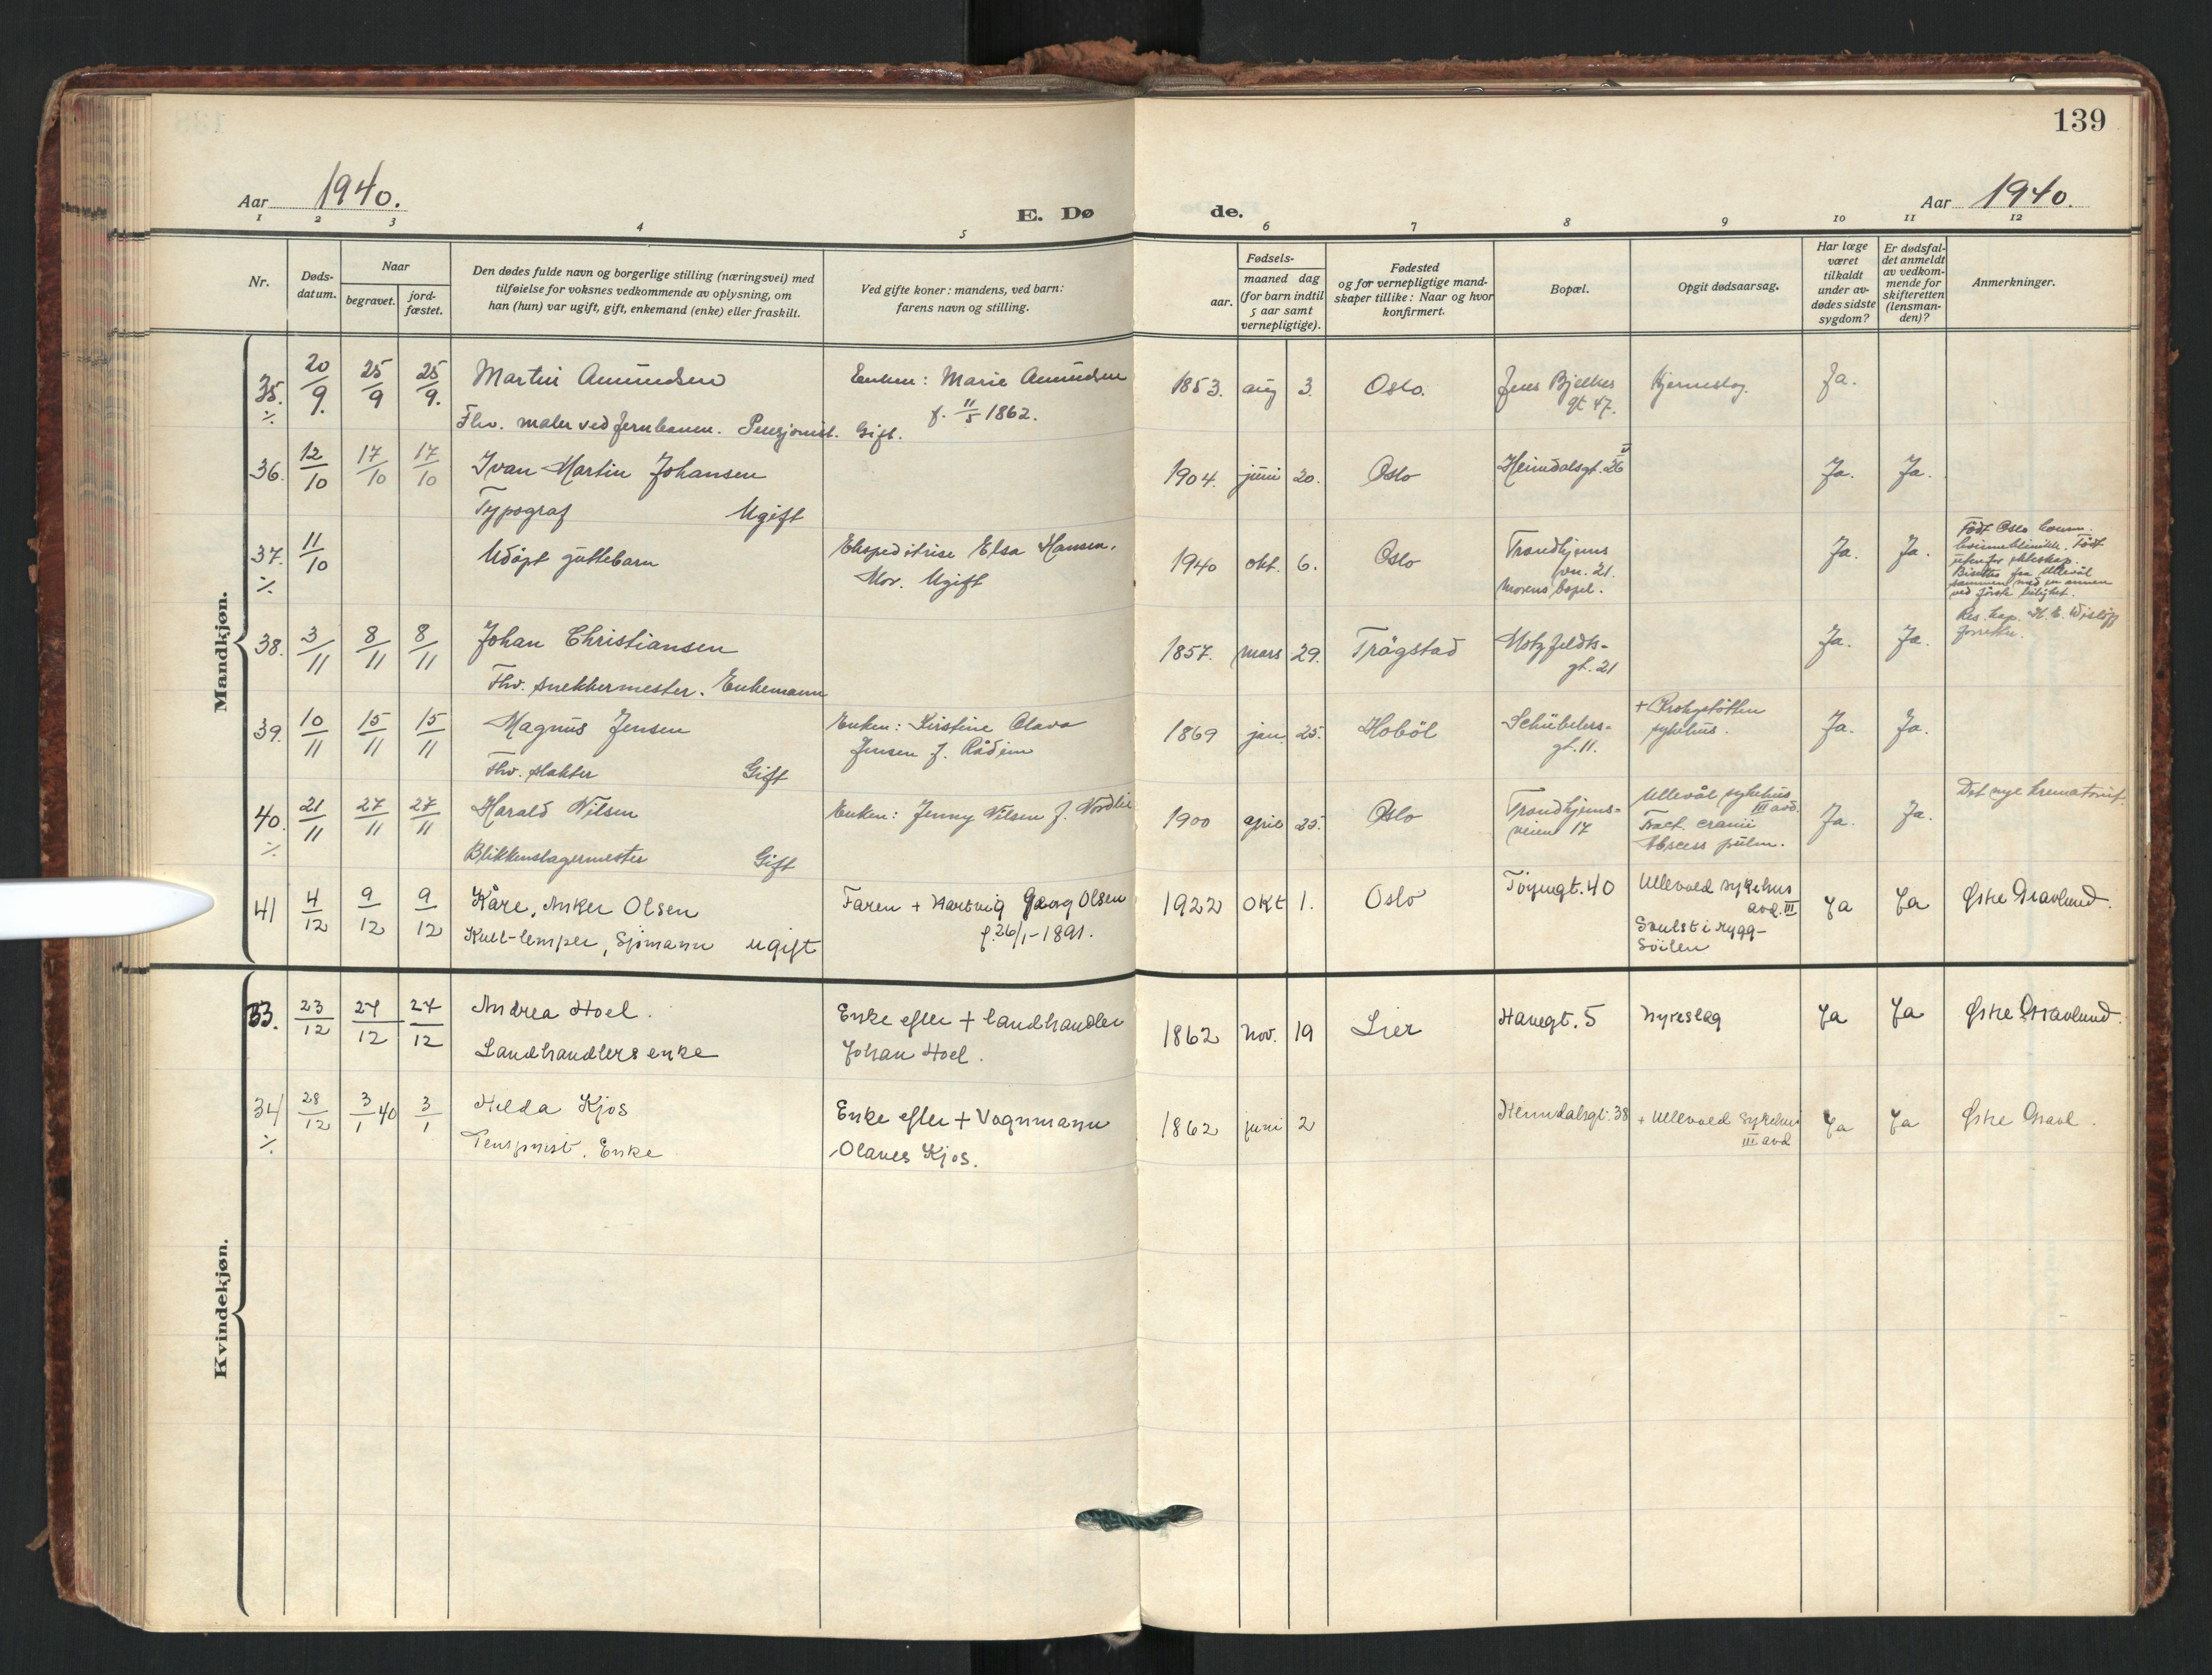 139
Aar 1940.
E. Dø de.
Aar 1940.
1 2 3 4 5 6 7 8 9 10 11 12
Nr.
Døds-
datum.
Naar
begravet.
jord-
fæstet.
Den dødes fulde navn og borgerlige stilling (næringsvei) med
tilføielse for voksnes vedkommende av oplysning, om
han (hun) var ugift, gift, enkemand (enke) eller fraskilt.
Ved gifte koner: mandens, ved barn:
farens navn og stilling.
Fødsels-
aar.
maaned dag
(for barn indtil
5 aar samt
vernepligtige).
Fødested
og for vernepligtige mand-
skaper tillike: Naar og hvor
konfirmert.
Bopæl.
Opgit dødsaarsag.
Har læge
været
tilkaldt
under av-
dødes sidste
sygdom?
Er dødsfal-
det anmeldt
av vedkom-
mende for
skifteretten
(lensman-
den)?
Anmerkninger.
Mandkjøn.
35. 20/9. 25/9 25/9. Martin Amundsen Enken: Marie Amundsen 1853. aug 3. Oslo. Jens Bjelkes Hjerneslag. Ja.
·/· Fhv. maler ved Jernbanen. Pensjonist. Gift. f. 11/5 1862. gt 47.
36. 12/10 17/10 17/10 Ivan Martin Johansen 1904. juni 20. Oslo Heimdalsgt. 26 Ja. Ja.
Typograf Ugift
37. 11/10 Udöpt guttebarn Ekspeditrise Elsa Hansen. 1940 okt. 6. Oslo Trondhjems Ja. Ja. Födt Oslo komm.
·/· Mor. Ugift vn. 21. kvinneklinikk. Födt
morens bopel. utenfor ekteskap.
Bisettes fra Ullevål
sammen med en annen
ved förste leilighet.
38. 3/11 8/11 8/11 Johan Christiansen 1857. mars 29. Trögstad Motzfeldts- Ja. Ja. Res. kap. H. E. Wislöff
Fhv. snekkermester. Enkemann gt. 21 forrettet.
39. 10/11 15/11 15/11 Magnus Jensen Enken: Kirstine Olava 1869 jan 25. Hoböl Schübelers- + Krohgstötten Ja. Ja.
Fhv. slakter Gift Jensen f. gt. 11. sykehus.
40. 21/11 27/11 27/11 Harald Nilsen Enken: Jenny Nilsen f. Nordlie 1900 april 25. Oslo Trondhjems- Ullevål sykehus Ja. Ja. Det nye krematorium.
·/· Blikkenslagermester Gift veien 17 III avd.
Fract. cranii
Abscess pulm.
41 4/12 9/12 9/12 Kåre, Anker Olsen Faren + Hartvig Georg Olsen 1922 Okt 1. Oslo Töyengt. 40 Ullevold sykehus Ja Ja Østre Gravlund.
Kull-lemper, Sjømann ugift f. 26/1-1891. avd. III
Svulst i rygg-
söilen
Kvindekjøn.
33. 23/12 27/12 27/12 Andrea Hoel. Enke efter + landhandler 1862 Nov. 19 Lier Havegt. 5 Nyreslag Ja Ja Østre Gravlund.
Landhandlers enke Johan Hoel.
34 28/12 3/1 40 3/1 Hilda Kjos Enke efter + Vognmann 1862 juni 2 Heimdalsgt. 38 + Ullevold sykehus Ja Ja Østre Gravl.
·/· Pensjonist. Enke Olaves Kjos. III avd